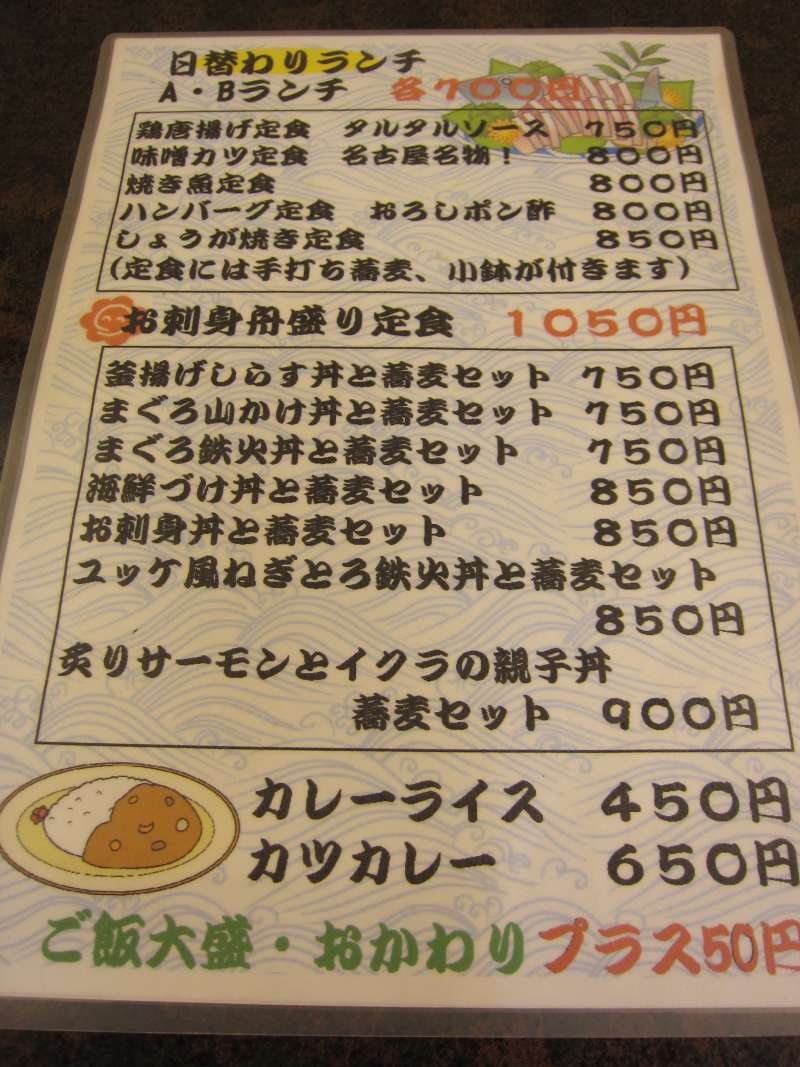 日替わりランチ
A・Bランチ 各700円
鶏唐揚げ定食 タルタルソース 750円
味噌カツ定食 名古屋名物！ 800円
焼き魚定食 800円
ハンバーグ定食 おろしポン酢 800円
しょうが焼き定食 850円
(定食には手打ち蕎麦、小鉢が付きます)
お刺身舟盛り定食 1050円
釜揚げしらす丼と蕎麦セット 750円
まぐろ山かけ丼と蕎麦セット 750円
まぐろ鉄火丼と蕎麦セット 750円
海鮮づけ丼と蕎麦セット 850円
お刺身丼と蕎麦セット 850円
ユッケ風ねぎとろ鉄火丼と蕎麦セット
850円
炙りサーモンとイクラの親子丼
蕎麦セット 900円
カレーライス 450円
カツカレー 650円
ご飯大盛・おかわりプラス50円